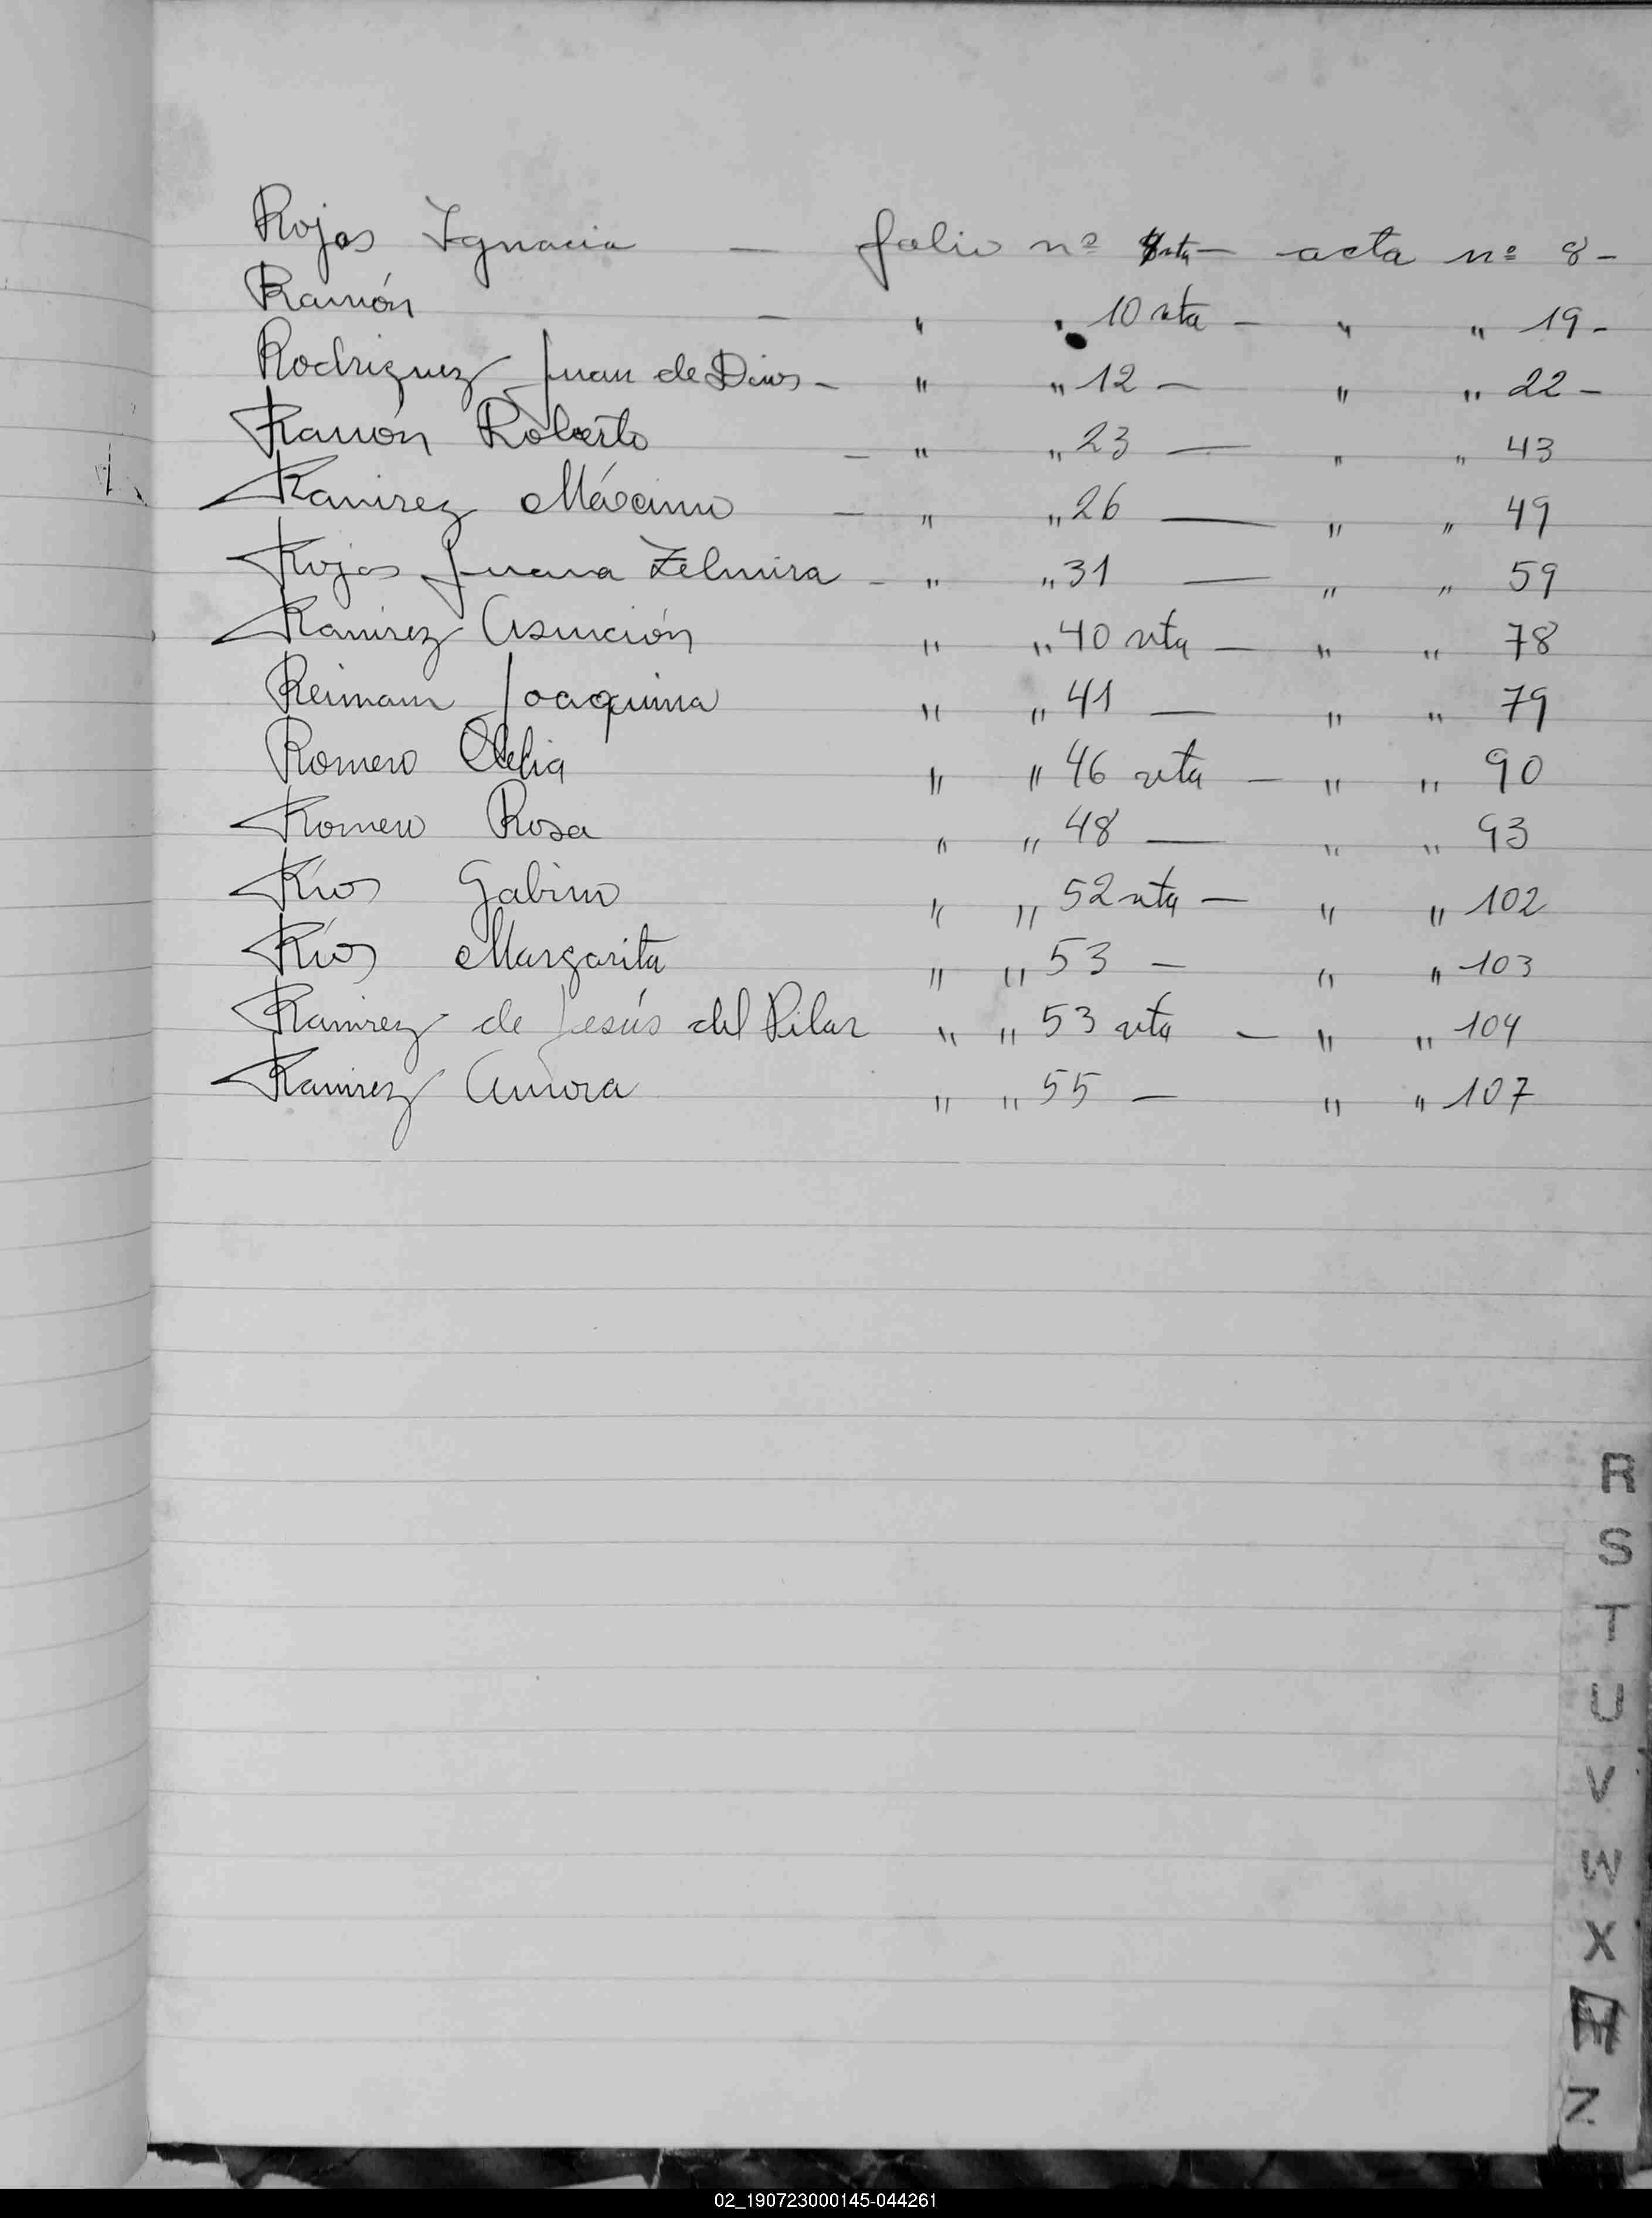 Rojas Ignacia — folio nº vta — acta nº 8 -
Ramón — " " 10 vta — " " 19 -
Rodriguez Juan de Dios - " " 12 — " " 22 -
Ramón Roberto — " " 23 — " " 43
Ramirez Máximo — " " 26 — " " 49
Rojas Juana Zelmira - " " 31 — " " 59
Ramirez Asunción " " 40 vta — " " 78
Reimann Joaquina " " 41 — " " 79
Romero Clelia " " 46 vta — " " 90
Romero Rosa " " 48 — " " 93
Ríos Gabino " " 52 vta — " " 102
Ríos Margarita " " 53 — " " 103
Ramirez de Jesús del Pilar " " 53 vta — " " 104
Ramirez Aurora " " 55 — " " 107
R
S
T
U
V
W
X
Z
02_190723000145-044261